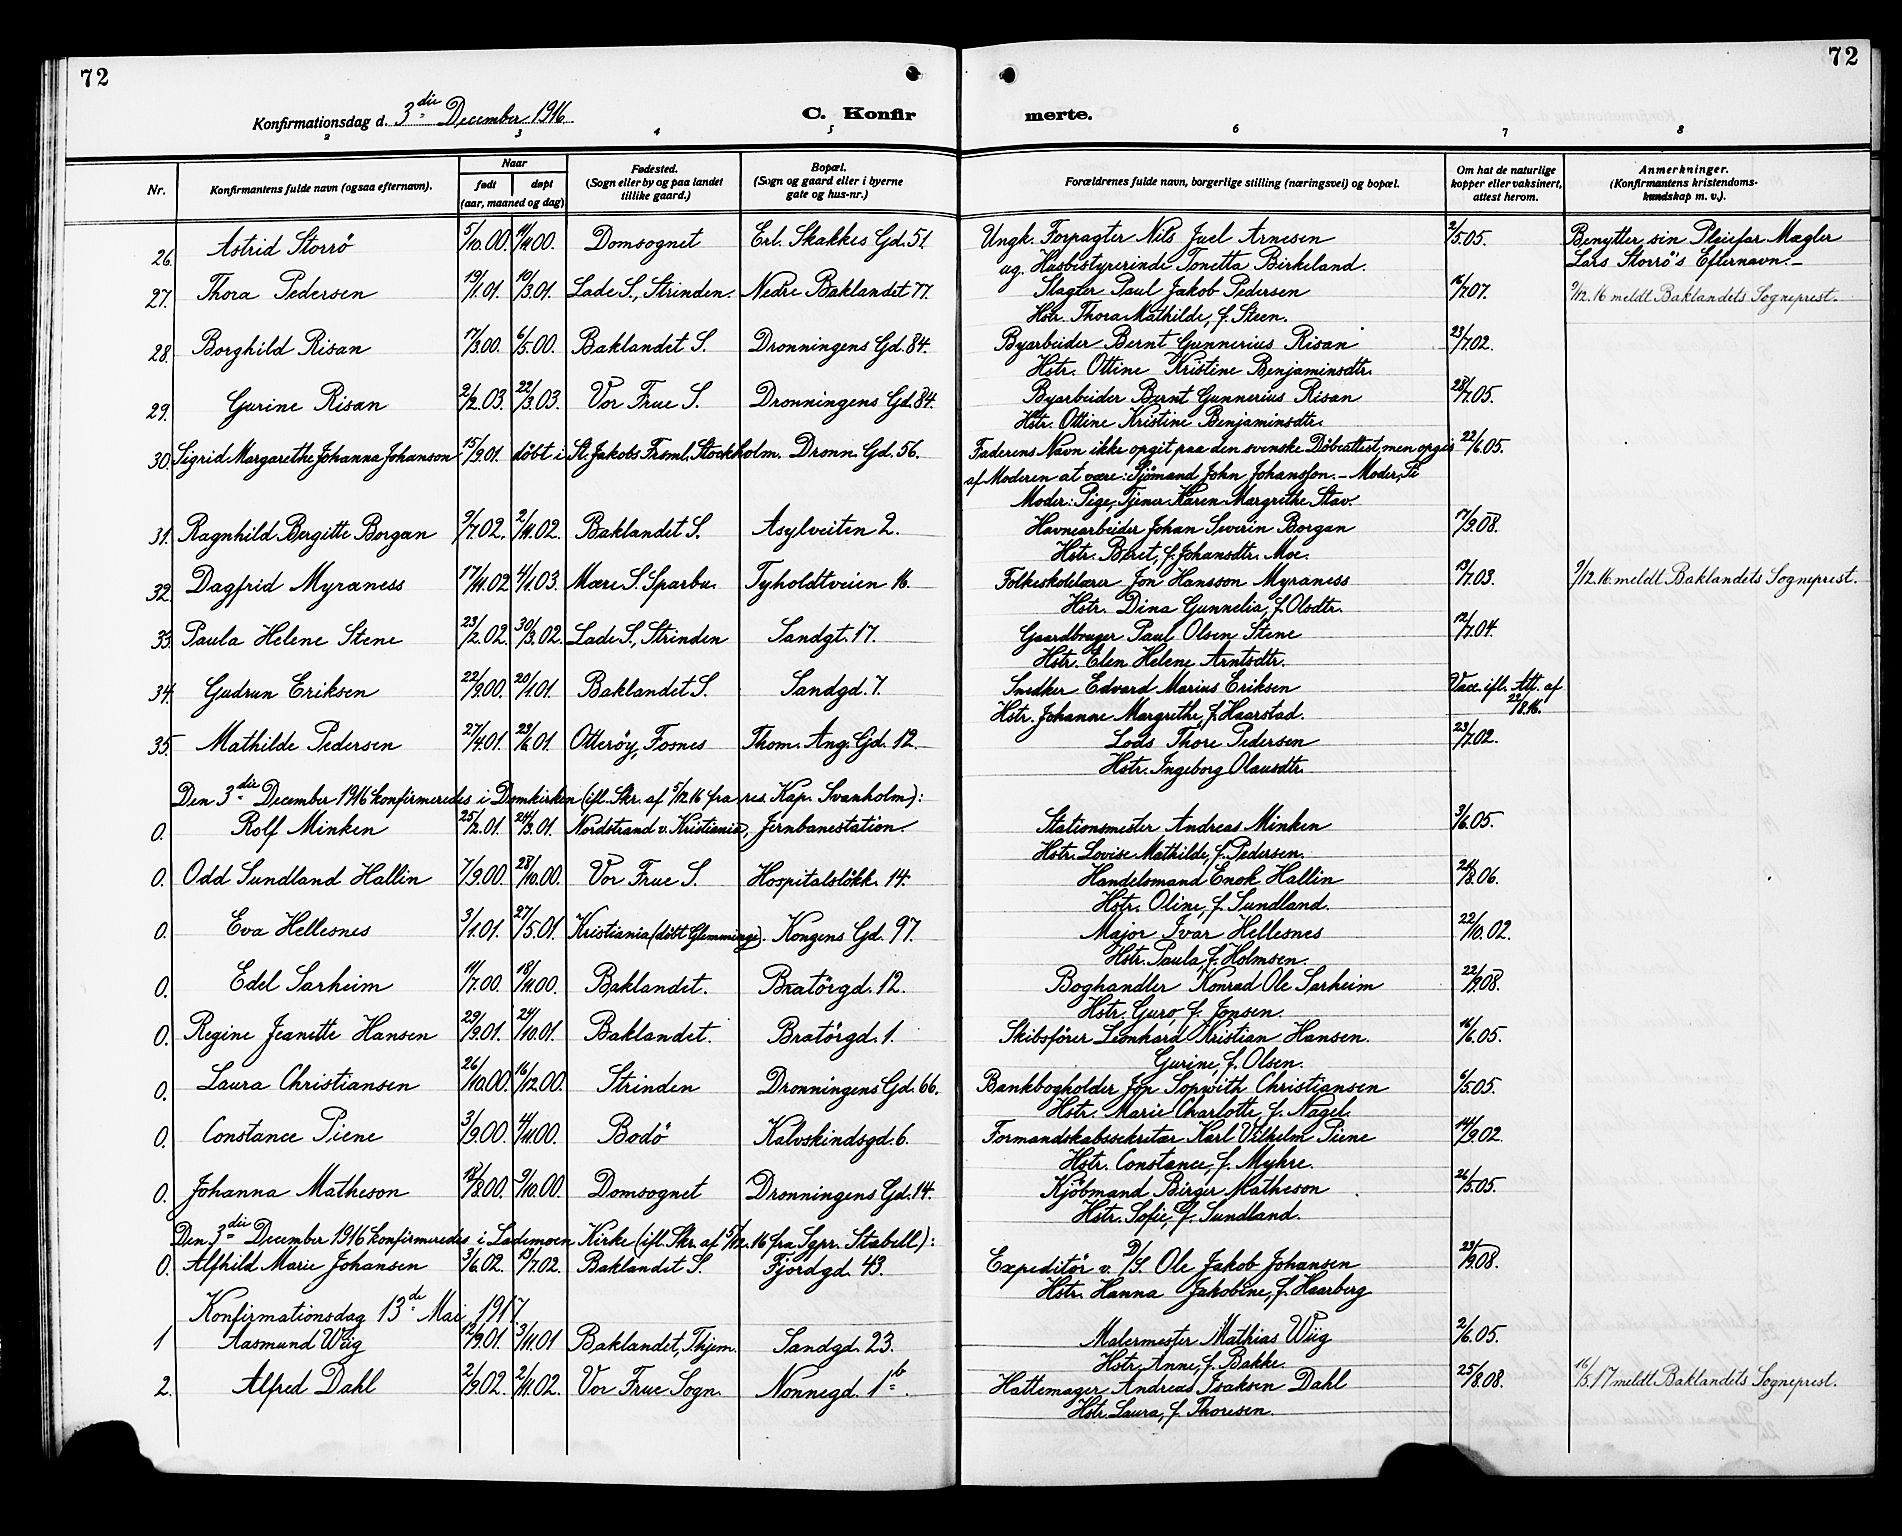 72
72
Konfirmationsdag d. 3die December 1916
C. Konfir
merte.
2 3 4 5 6 7 8
Nr.
Konfirmantens fulde navn (ogsaa efternavn).
Naar
født
døpt
(aar, maaned og dag)
Fødested.
(Sogn eller by og paa landet
tillike gaard.)
Bopæl.
(Sogn og gaard eller i byerne
gate og hus-nr.)
Forældrenes fulde navn, borgerlige stilling (næringsvei) og bopæl.
Om hat de naturlige
kopper eller vaksinert,
attest herom.
Anmerkninger.
(Konfirmantens kristendoms-
kundskap m. v.).
26. Astrid Storrö 5/10.00. 11/11.00. Domsognet Erl. Skakkes Gd. 51 Ungk. Forpagter Nils Juel Arnesen 2/5.05. Benytter sin Pleiefar Mægler
ug. Husbestyrerinde Tonetta Birkeland. Lars Storrö's Efternavn.-
27. Thora Pedersen 19/1.01. 10/3.01. Lade S., Strinden. Nedre Baklandet 77. Slagter Paul Jakob Pedersen 16/7.07. 9/12.16 meldt Baklandets Sogneprest.
Hstr. Thora Mathilde, f. Steen.
28. Borghild Risan 17/3.00. 6/5.00. Baklandet S. Dronningens Gd. 84. Byarbeider Bernt Gunnerius Risan 23/7.02.
Hstr. Ottine Kristine Benjaminsdtr.
29. Gurine Risan 2/2.03. 22/3.03. Vor Frue S. Dronningens Gd. 84. Byarbeider Bernt Gunnerius Risan 28/7.05.
Hstr. Ottine Kristine Benjaminsdtr.
30. Sigrid Margarethe Johanna Johanson 15/9.01. döbt i St. Jakobs Frsml. Stockholm. Dronn. Gd. 56. Faderens Navn ikke opgit paa den svenske Döbeattest, men opgis 22/6.05.
af Moderen at være: Sjömand John Johansson. - Moder, Pi
Moder: Pige, Tjener Karen Margrethe Stav.
31. Ragnhild Bergitte Borgan 9/7.02. 2/11.02. Baklandet S. Asylveiten 2. Havnearbeider Johan Severin Borgan 17/9.08.
Hstr. Beret, f. Johansdtr. Moe.
32. Dagfrid Myraness 17/11.02 4/1.03. Mære S. Sparbu. Tyholdtveien 16. Folkeskolelærer Jon Hansson Myraness 13/7.03. 9/12.16. meldt Baklandets Sogneprest.
Hstr. Dina Gunnelia, f. Olsdtr.
33. Paula Helene Stene 23/2.02. 30/3.02. Lade S., Strinden Sandgt. 17. Gaardbruger Paul Olsen Stene 12/7.04.
Hstr. Elen Helene Arntsdtr.
34. Gudrun Eriksen 22/9.00. 20/1.01. Baklandet S. Sandgd. 7. Snedker Edvard Marius Eriksen Vacc. ifl. Att. af
Hstr. Johanne Margrethe, f. Haarstad. 22/8.16.
35. Mathilde Pedersen 27/4.01. 23/6.01. Otterøy, Fosnes Thom. Ang. Gd. 12. Lods Thore Pedersen 23/7.02.
Hstr. Ingeborg Olausdtr.
Den 3die December 1916 konfirmeredes i Domkirken (ifl. Skr. af 5/12.16 fra res. Kap. Svanholm):
0. Rolf Minken 25/2.01. 24/3.01. Nordstrand v. Kristiania, Jernbanestation. Stationsmester Andreas Minken 3/6.05.
Hstr. Lovise Mathilde, f. Pedersen.
0. Odd Sundland Hallin 7/9.00. 28/10.00. Vor Frue S. Hospitalslökk. 14. Handelsmand Enok Hallin 24/8.06.
Hstr. Oline, f. Sundland.
0. Eva Hellesnes 3/1.01. 27/5.01. Kristiania (döbt Glemminge). Kongens Gd. 97. Major Ivar Hellesnes 22/10.02.
Hstr. Paula, f. Holmsen.
0. Edel Sarheim 11/7.00. 18/11.00. Baklandet. Bratörgd. 12. Boghandler Konrad Ole Sarheim 22/9.08.
Hstr. Guro, f. Jonsen.
0. Regine Jeanette Hansen 29/9.01. 24/10.01. Baklandet. Bratörgd. 1. Skibsförer Leonhard Kristian Hansen. 16/6.05.
Gurine, f. Olsen.
0. Laura Christiansen 26/10.00. 16/12.00. Strinden Dronningens Gd. 66. Bankbogholder Jon Sopwith Christiansen 6/5.05.
Hstr. Marie Charlotte, f. Nagel.
0. Constance Piene 3/9.00. 4/11.00. Bodö Kalvskindsgd. 6. Formandskabssekretær Karl Vilhelm Piene 14/9.02.
Hstr. Constance, f. Myhre.
0. Johanna Matheson 18/8.00. 9/10.00. Domsognet Dronningens Gd. 14. Kjöbmand Birger Matheson 26/5.05.
Hstr. Sofie, f. Sundland.
Den 3die December 1916 konfirmeredes i Lademoen Kirke (ifl. Skr. af 5/12.16 fra Sgpr. Stabell):
0. Alfhild Marie Johansen 3/6.02. 13/7.02. Baklandet S. Fjordgd. 43. Expeditör v. D/S. Ole Jakob Johansen 23/9.08.
Hstr. Hanna Jakobine, f. Haarberg
Konfirmationsdag 13de Mai 1917.
1 Aasmund Wiig 12/9.01. 3/11.01 Baklandet, Thjem. Sandgd. 23. Malermester Mathias Wiig 2/6.05.
Hstr. Anne, f. Bakke.
2. Alfred Dahl 2/9.02. 2/11.02. Vor Frue Sogn. Nonnegd. 1b. Hattemager Andreas Isaksen Dahl 25/8.08. 16/5.17 meldt Baklandets Sogneprest.
Hstr. Laura, f. Thoresen.